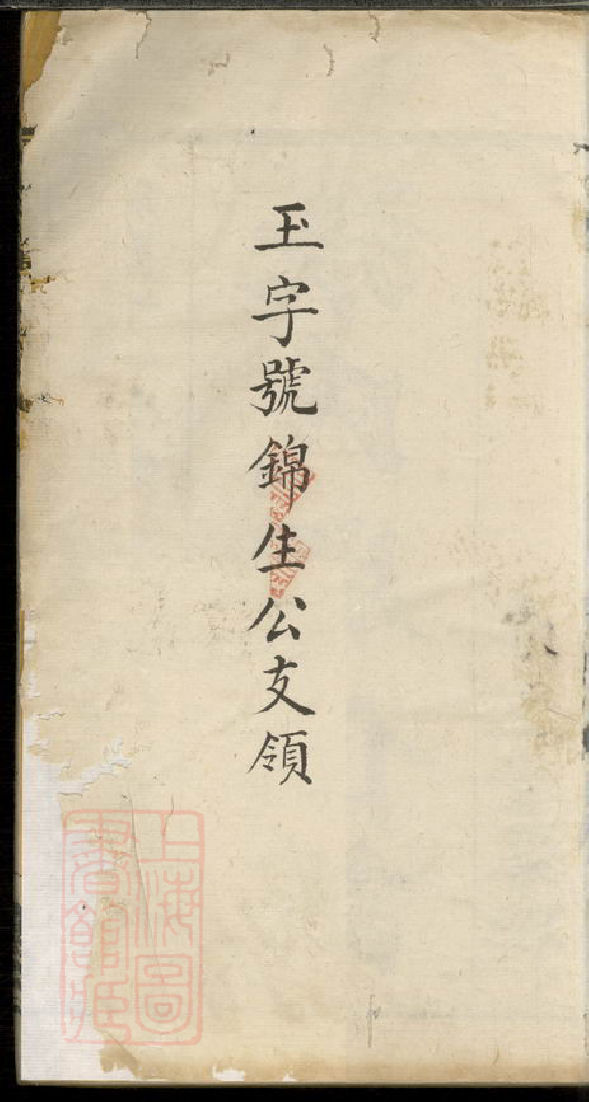 玉字號錦生公支領
上海圖
書館藏